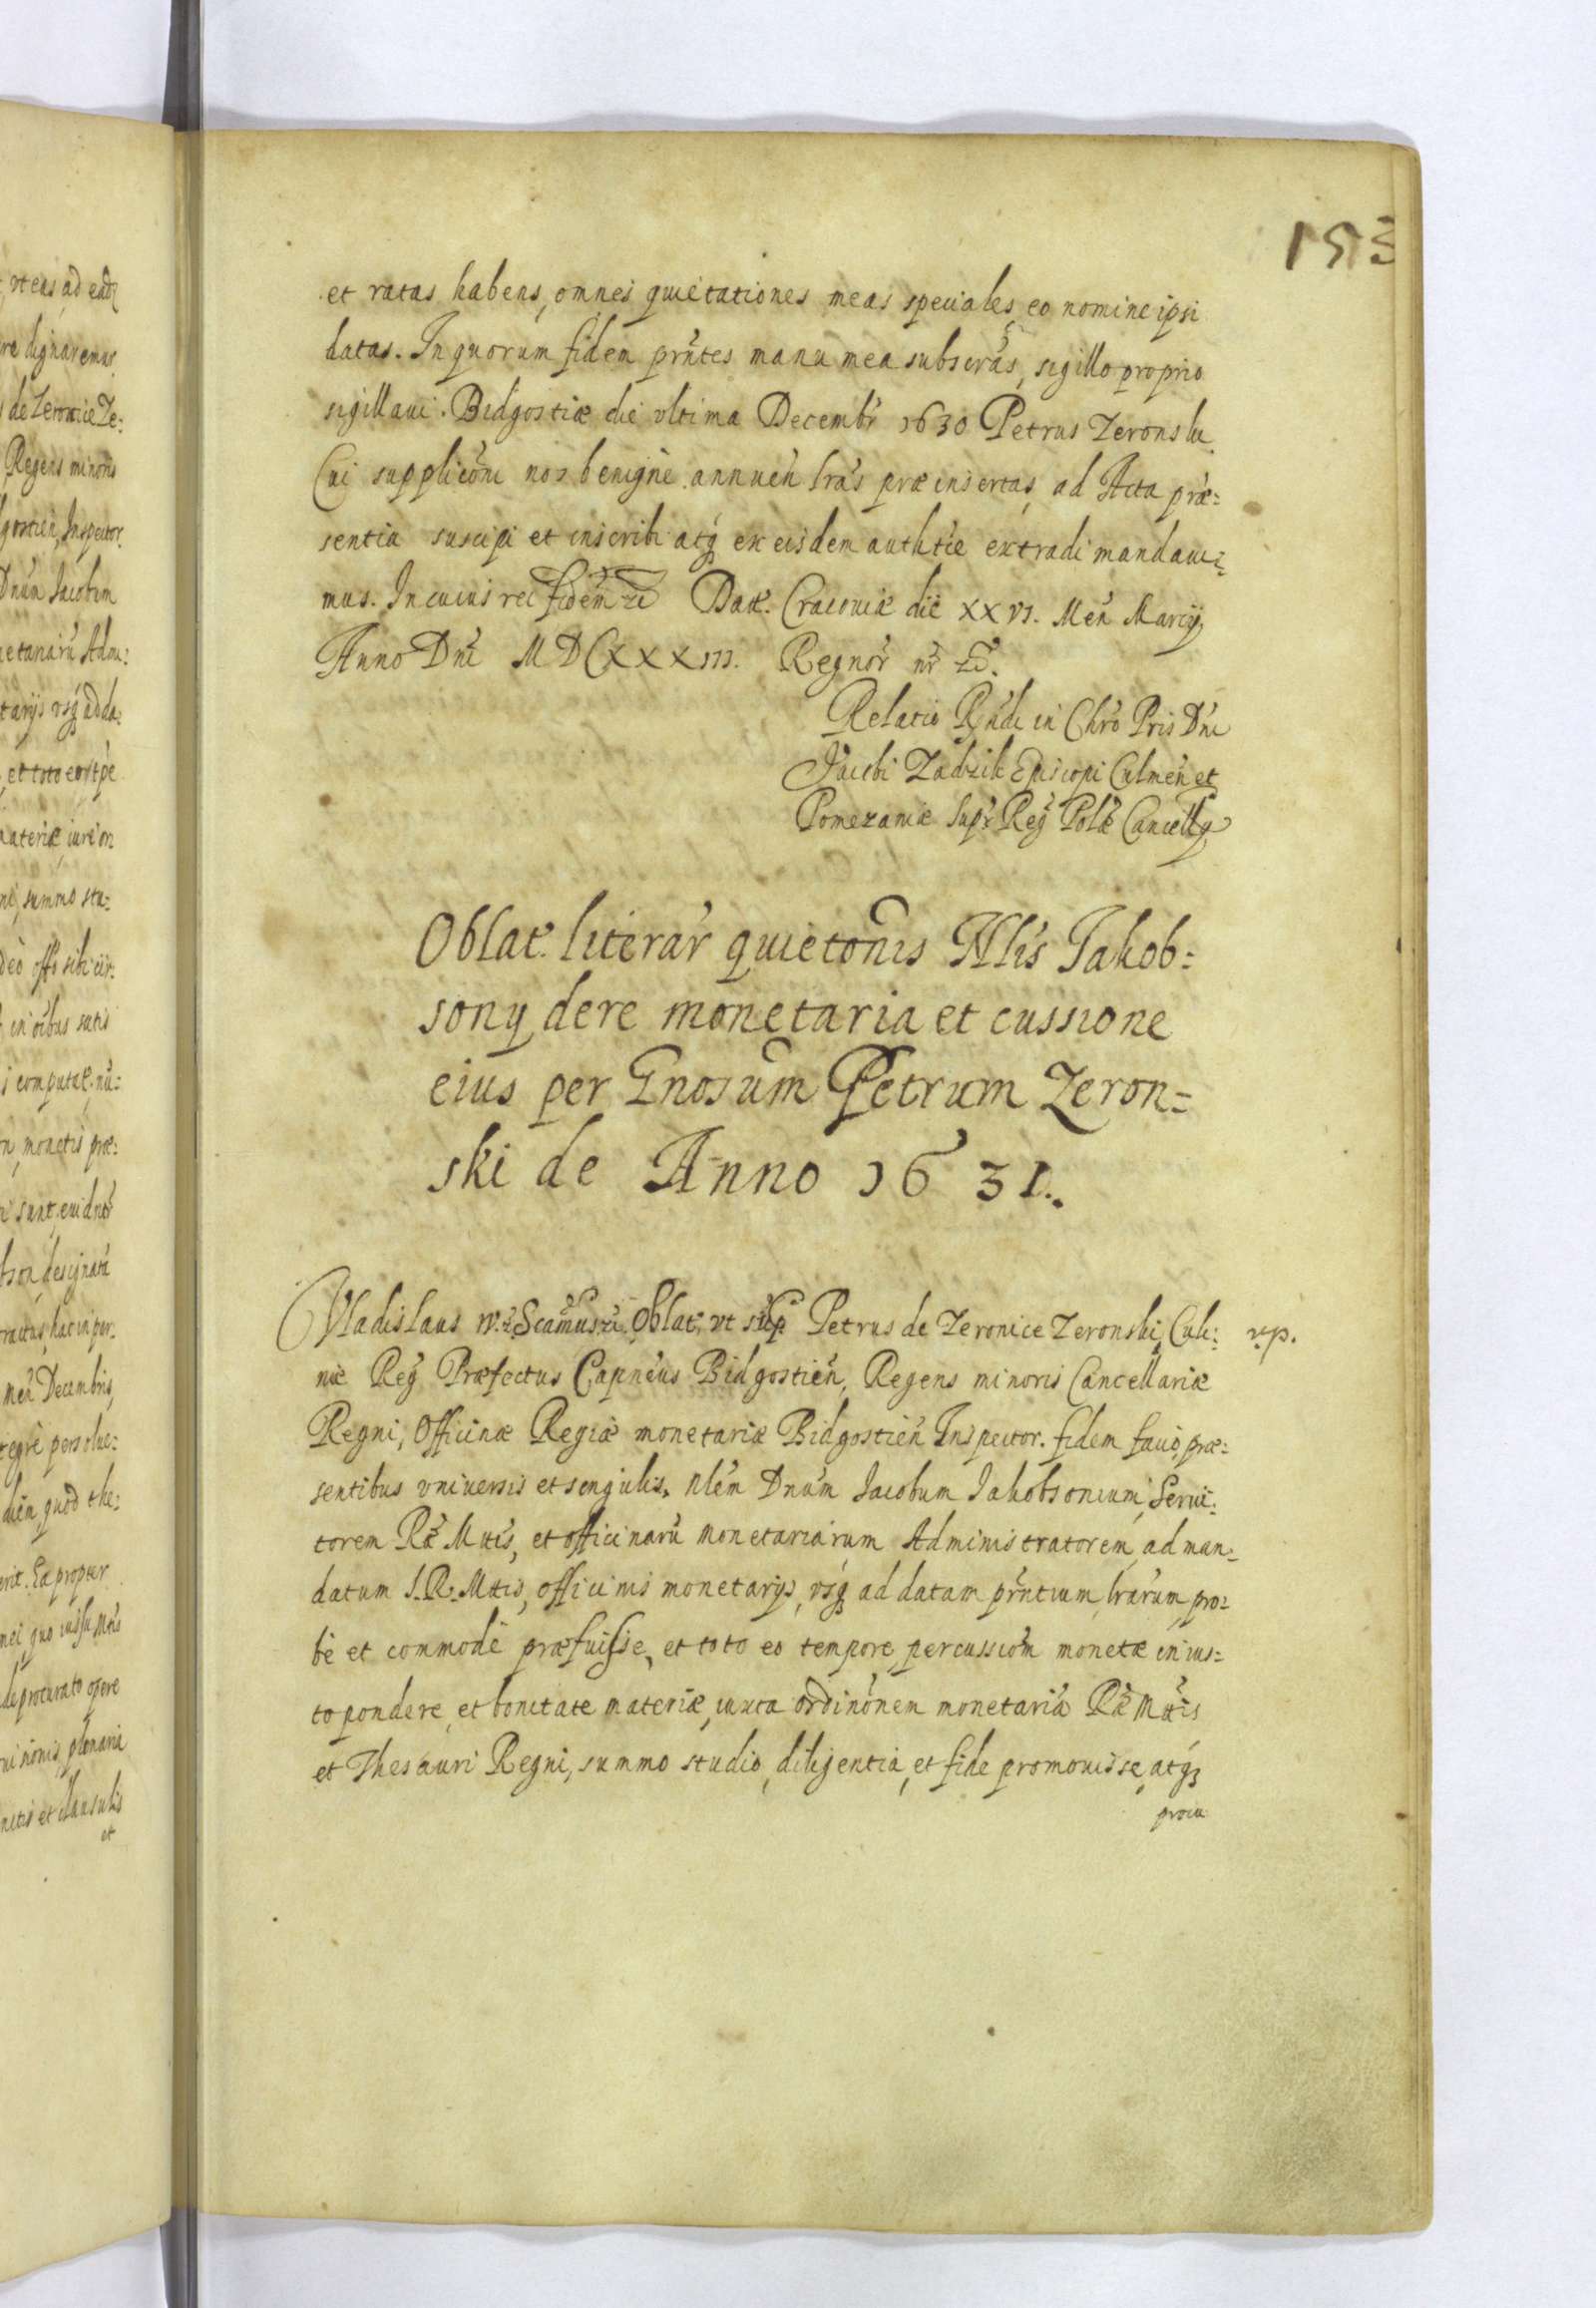 153
et ratas habens, omnes quietationes meas speciales, eo nomine ipsi
datas. In quorum fidem prñtes manu mea subscrãs, sigillo proprio
sigillaui. Bidgostiæ die vltima Decembr̃ 1630 Petrus Zeronski
Cui supplicõni nos benignè annueñ lrãs præinsertas, ad Acta præ=
sentia suscipi et inscribi atq; ex eisdem authtĩe extradi mandaui=
mus. In cuius rei fidem̃ Dat̃. Cracouiæ die XXVI. Meñ Marcij,
Anno Dñi MDCXXXIII. Regnor̃ nr̃
Relatio Rñdi in Chrõ Pris Dñi
Jacobi Zadzik Episcopi Culmeñ et
Pomezaniæ supr̃ Reg̃ Polæ Cancell
Oblat̃. literar̃ quietõnis Nlis Jakob=
sony de re monetaria et cussione
eius per Gnosũm Petrum Zeron=
ski de Anno 1631.
Vladislaus IV. Oblat̃. vt sup Petrus de Zeronice Zeronski, Culi= v.p.
næ Reg̃ Præfectus Capnẽus Bidgostieñ, Regens minoris Cancellariæ
Regni, Officinæ Regiæ monetariæ Bidgostieñ Inspector. fidem facio, præ=
sentibus vniuersis et singulis, Nlẽm Dnũm Iacobum Jakobsonium, Serui=
torem Ræ̃ Mttis, et officinarũ monetariarum Administratorem, ad man=
datum S. R. Mttis, officinis monetarijs, vsq; ad datam prñtium lrarũm, pro=
bè et commodè præfuisse, et toto eo tempore, percussiõm monetæ in ius=
to pondere, et bonitate materiæ, iuxta ordinõnem monetariã Ræ̃ Mttis
et Thesauri Regni, summo studio, diligentia, et fide promouisse, atq;
procu